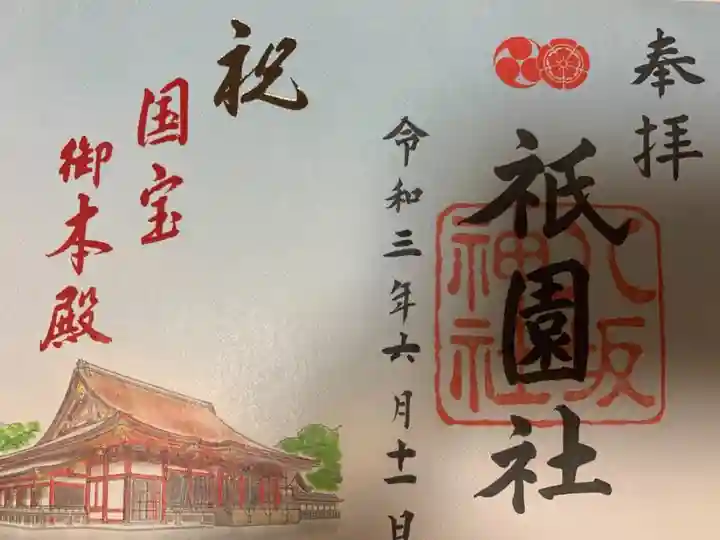 奉拝
祇園社
八坂
神社
令和三年六月十一日
祝
国宝
御本殿